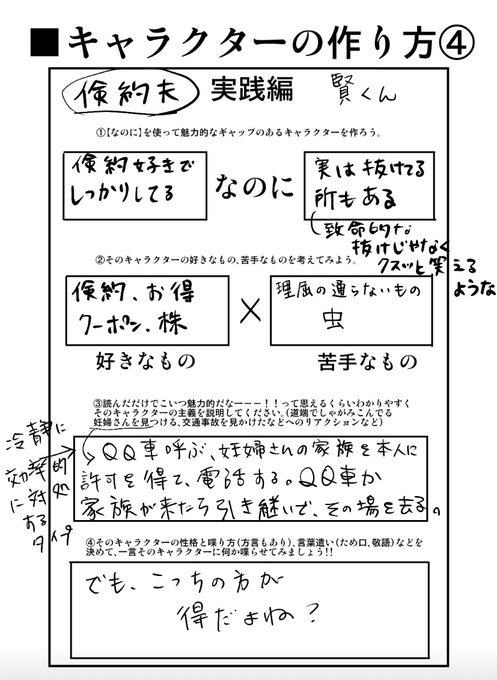 ■キャラクターの作り方④
倹約夫 実践編 賢くん
①【なのに】を使って魅力的なギャップのあるキャラクターを作ろう。
倹約好きで
しっかりしてる
なのに
実は抜けてる
所もある
致命的な
抜けじゃなく
クスッと笑える
ような
②そのキャラクターの好きなもの、苦手なものを考えてみよう。
倹約、お得
クーポン、株
×
理屈の通らないもの
虫
好きなもの
苦手なもの
③読んだだけでこいつ魅力的だなーーー！！って思えるくらいわかりやすく
そのキャラクターの主義を説明してください。（道端でしゃがみこんでる
妊婦さんを見つける、交通事故を見かけたなどへのリアクションなど）
冷静に
効率的
に対処
する
タイプ
QQ車呼ぶ、妊婦さんの家族を本人に
許可を得て、電話する。QQ車か
家族が来たら引き継いで、その場を去る。
④そのキャラクターの性格と喋り方（方言もあり）、言葉遣い（ため口、敬語）などを
決めて、一言そのキャラクターに何か喋らせてみましょう！！
でも、こっちの方が
得だよね？